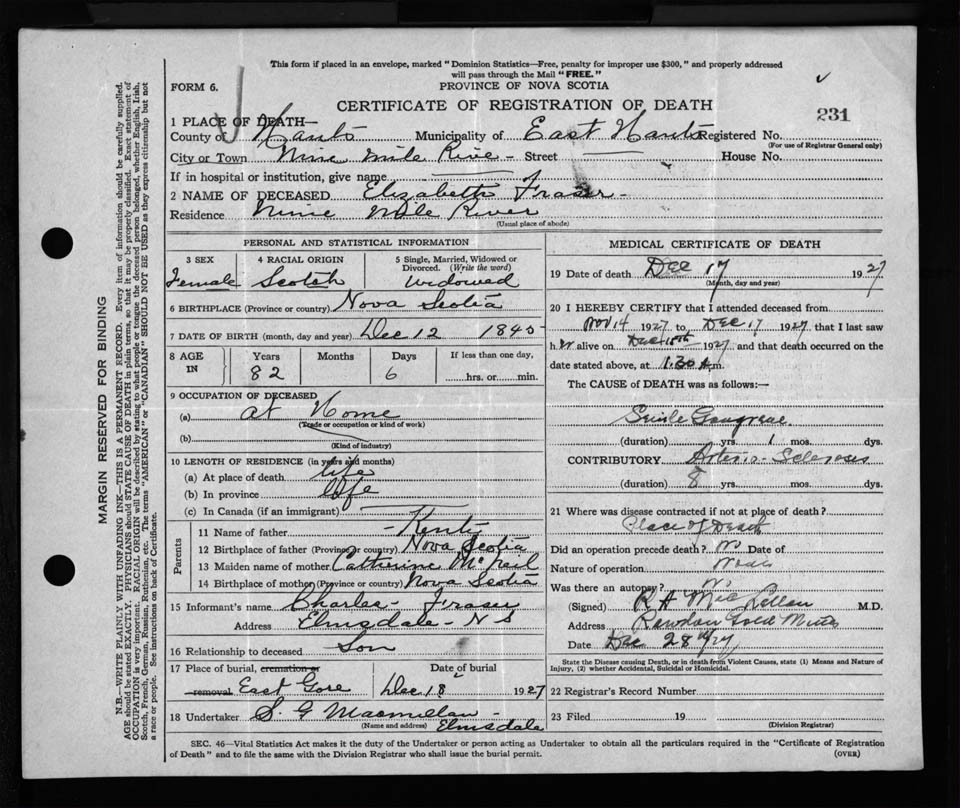 This form if placed in an envelope, marked "Dominion Statistics—Free, penalty for improper use $300," and properly addressed
will pass through the Mail "FREE."
FORM 6.
PROVINCE OF NOVA SCOTIA
CERTIFICATE OF REGISTRATION OF DEATH
231
1 PLACE OF DEATH—
County of Hants Municipality of East Hants Registered No.
(For use of Registrar General only)
City or Town Nine mile Rive - Street House No.
If in hospital or institution, give name
2 NAME OF DECEASED Elizabeth Fraser -
Residence Nine Mile River
(Usual place of abode)
PERSONAL AND STATISTICAL INFORMATION
3 SEX 4 RACIAL ORIGIN 5 Single, Married, Widowed or
Divorced. (Write the word)
Female Scotch Widowed
6 BIRTHPLACE (Province or country) Nova Scotia
7 DATE OF BIRTH (month, day and year) Dec 12 1845
8 AGE IN Years Months Days If less than one day,
82 6 hrs. or min.
9 OCCUPATION OF DECEASED
(a) at Home
(Trade or occupation or kind of work)
(b)
(Kind of industry)
10 LENGTH OF RESIDENCE (in years and months)
(a) At place of death life
(b) In province life
(c) In Canada (if an immigrant)
Parents
11 Name of father - Kenty
12 Birthplace of father (Province or country) Nova Scotia
13 Maiden name of mother Catherine McNeil
14 Birthplace of mother (Province or country) Nova Scotia
15 Informant's name Charles - Fraser
Address Elmsdale - N S
16 Relationship to deceased Son
17 Place of burial, cremation or Date of burial
removal East Gore Dec 18 1927
18 Undertaker S. G Macmillan -
(Name and address) Elmsdale
MEDICAL CERTIFICATE OF DEATH
19 Date of death Dec 17 1927
(Month, day and year)
20 I HEREBY CERTIFY that I attended deceased from
Nov 14 1927 to Dec 17 1927 that I last saw
h er alive on Dec 1927 and that death occurred on the
date stated above, at 1.30 m.
The CAUSE of DEATH was as follows:—
Senile Gangrene
(duration) yrs. 1 mos. dys.
CONTRIBUTORY Arterio-Sclerosis
(duration) 8 yrs. mos. dys.
21 Where was disease contracted if not at place of death?
Place of Death
Did an operation precede death? no Date of
Nature of operation
Was there an autopsy? No
(Signed) R A McLellan M.D.
Address Rawdon Gold Mines
Date Dec 28 27
State the Disease causing Death, or in death from Violent Causes, state (1) Means and Nature of
Injury, (2) whether Accidental, Suicidal or Homicidal.
22 Registrar's Record Number
23 Filed 19
(Division Registrar)
SEC. 46—Vital Statistics Act makes it the duty of the Undertaker or person acting as Undertaker to obtain all the particulars required in the "Certificate of Registration
of Death" and to file the same with the Division Registrar who shall issue the burial permit. (OVER)
MARGIN RESERVED FOR BINDING
N.B.—WRITE PLAINLY WITH UNFADING INK—THIS IS A PERMANENT RECORD. Every item of information should be carefully supplied.
AGE should be stated EXACTLY. PHYSICIANS should STATE CAUSE OF DEATH in plain terms, so that it may be properly classified. Exact statement of
OCCUPATION is very important. RACIAL ORIGIN will be described by stating to what people or tongue the deceased person belonged, whether English, Irish,
Scotch, French, German, Russian, Ruthenian, etc. The terms "AMERICAN" or "CANADIAN" SHOULD NOT BE USED as they express citizenship but not
a race or people. See instructions on back of Certificate.